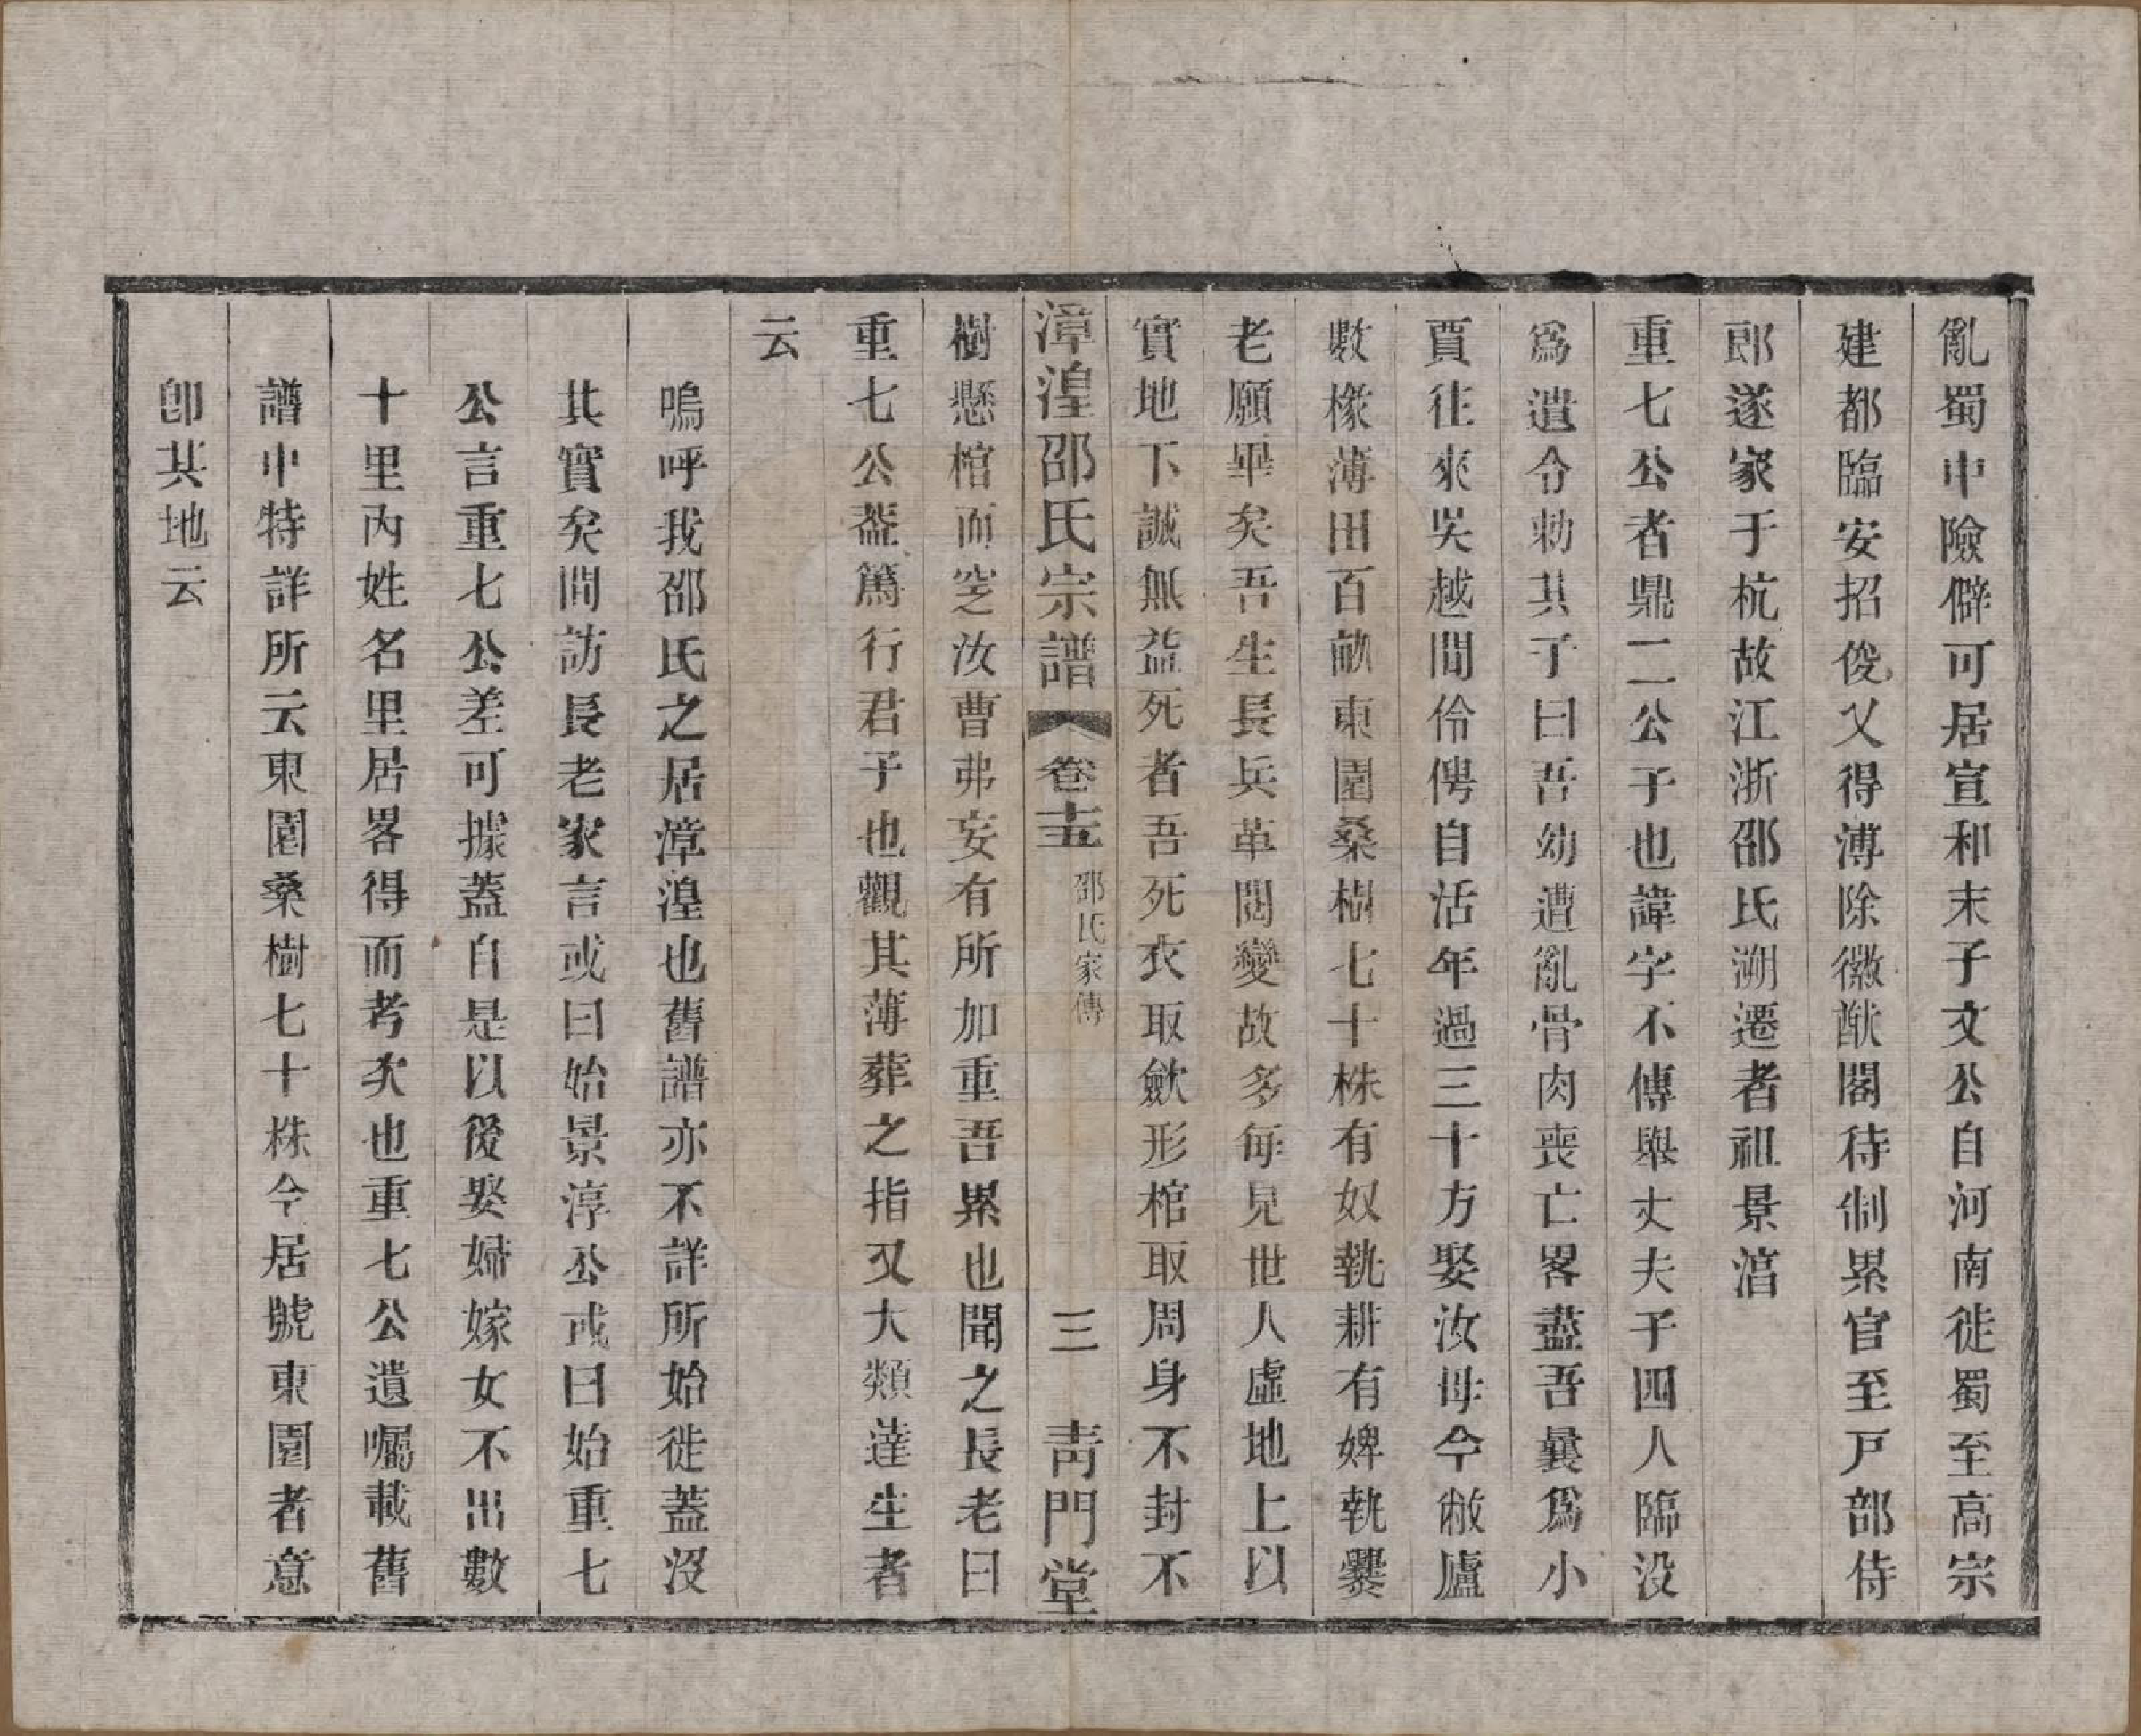 亂蜀中險僻可居宣和末子文公自河南徙蜀至高宗
建都臨安招俊乂得溥除徽猷閣待制累官至戸部侍
郎遂家于杭故江浙邵氏溯遷者祖景㴠
重七公者鼎二公子也諱字不傳舉丈夫子四人臨没
爲遺令勅其子曰吾幼遭亂骨肉喪亡畧盡吾曩爲小
賈往來吳越間伶俜自活年過三十方娶汝母今敝廬
數椽薄田百畝東園桑樹七十株有奴執耕有婢執爨
老願畢矣吾生長兵革閱變故多每見世人虛地上以
實地下誠無益死者吾死衣取斂形棺取周身不封不
漳湟邵氏宗譜 卷十五 邵氏家傳 三 靑門堂
樹懸棺而窆汝曹弗妄有所加重吾累也聞之長老曰
重七公葢篤行君子也觀其薄葬之指又大類達生者
云
嗚呼我邵氏之居漳湟也舊譜亦不詳所始徙蓋沒
其實矣間訪長老家言或曰始景淳公或曰始重七
公言重七公差可據蓋自是以後娶婦嫁女不出數
十里內姓名里居畧得而考次也重七公遺囑載舊
譜中特詳所云東園桑樹七十株今居號東園者意
卽其地云